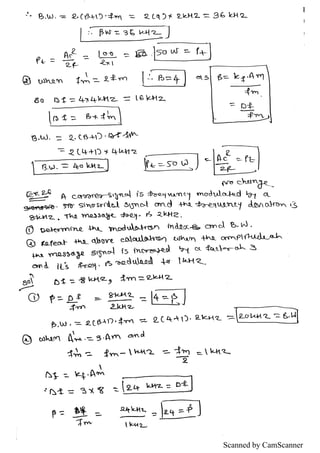 ∴ B.W. = 2.(β+1).fm = 2(9) × 2kHZ = 36 kHZ
∴ BW = 36 kHZ
Pt = Ac²/2R = 100/2×1 = 50 W = Pt
② when fm' = 2fm ∴ B=4 as β = kf.Am/fm
so Df = 4×4kHZ = 16kHZ = Df/fm
Df = B×fm'
B.W. = 2.(β+1).fm
= 2(4+1) × 4kHZ
B.W. = 40 kHZ Pt = 50 W = Ac²/2R = Pt
no change
Ex.26 A carrier signal is frequency modulated by a
sinusoidal signal and the frequency deviation is
8kHZ, The message freq. is 2kHZ.
① Determine the modulation index and B.W.
② Repeat the above calculation when the amplitude
the message signal is increased by a factor 3
and it's freq. is reduced to 1kHZ
sol Df = 8kHZ, fm = 2kHZ
① β = Df/fm = 8kHZ/2kHZ = 4 = β
B.W. = 2(β+1).fm = 2(4+1).2kHZ = 20kHZ = B.W
② when Am' = 3.Am and
fm' = fm - 1kHZ = fm/2 = 1kHZ
Df = kf.Am'
Df = 3×8 = 24 kHZ = Df
β = Df/fm = 24kHZ/1kHZ = 24 = β
Scanned by CamScanner